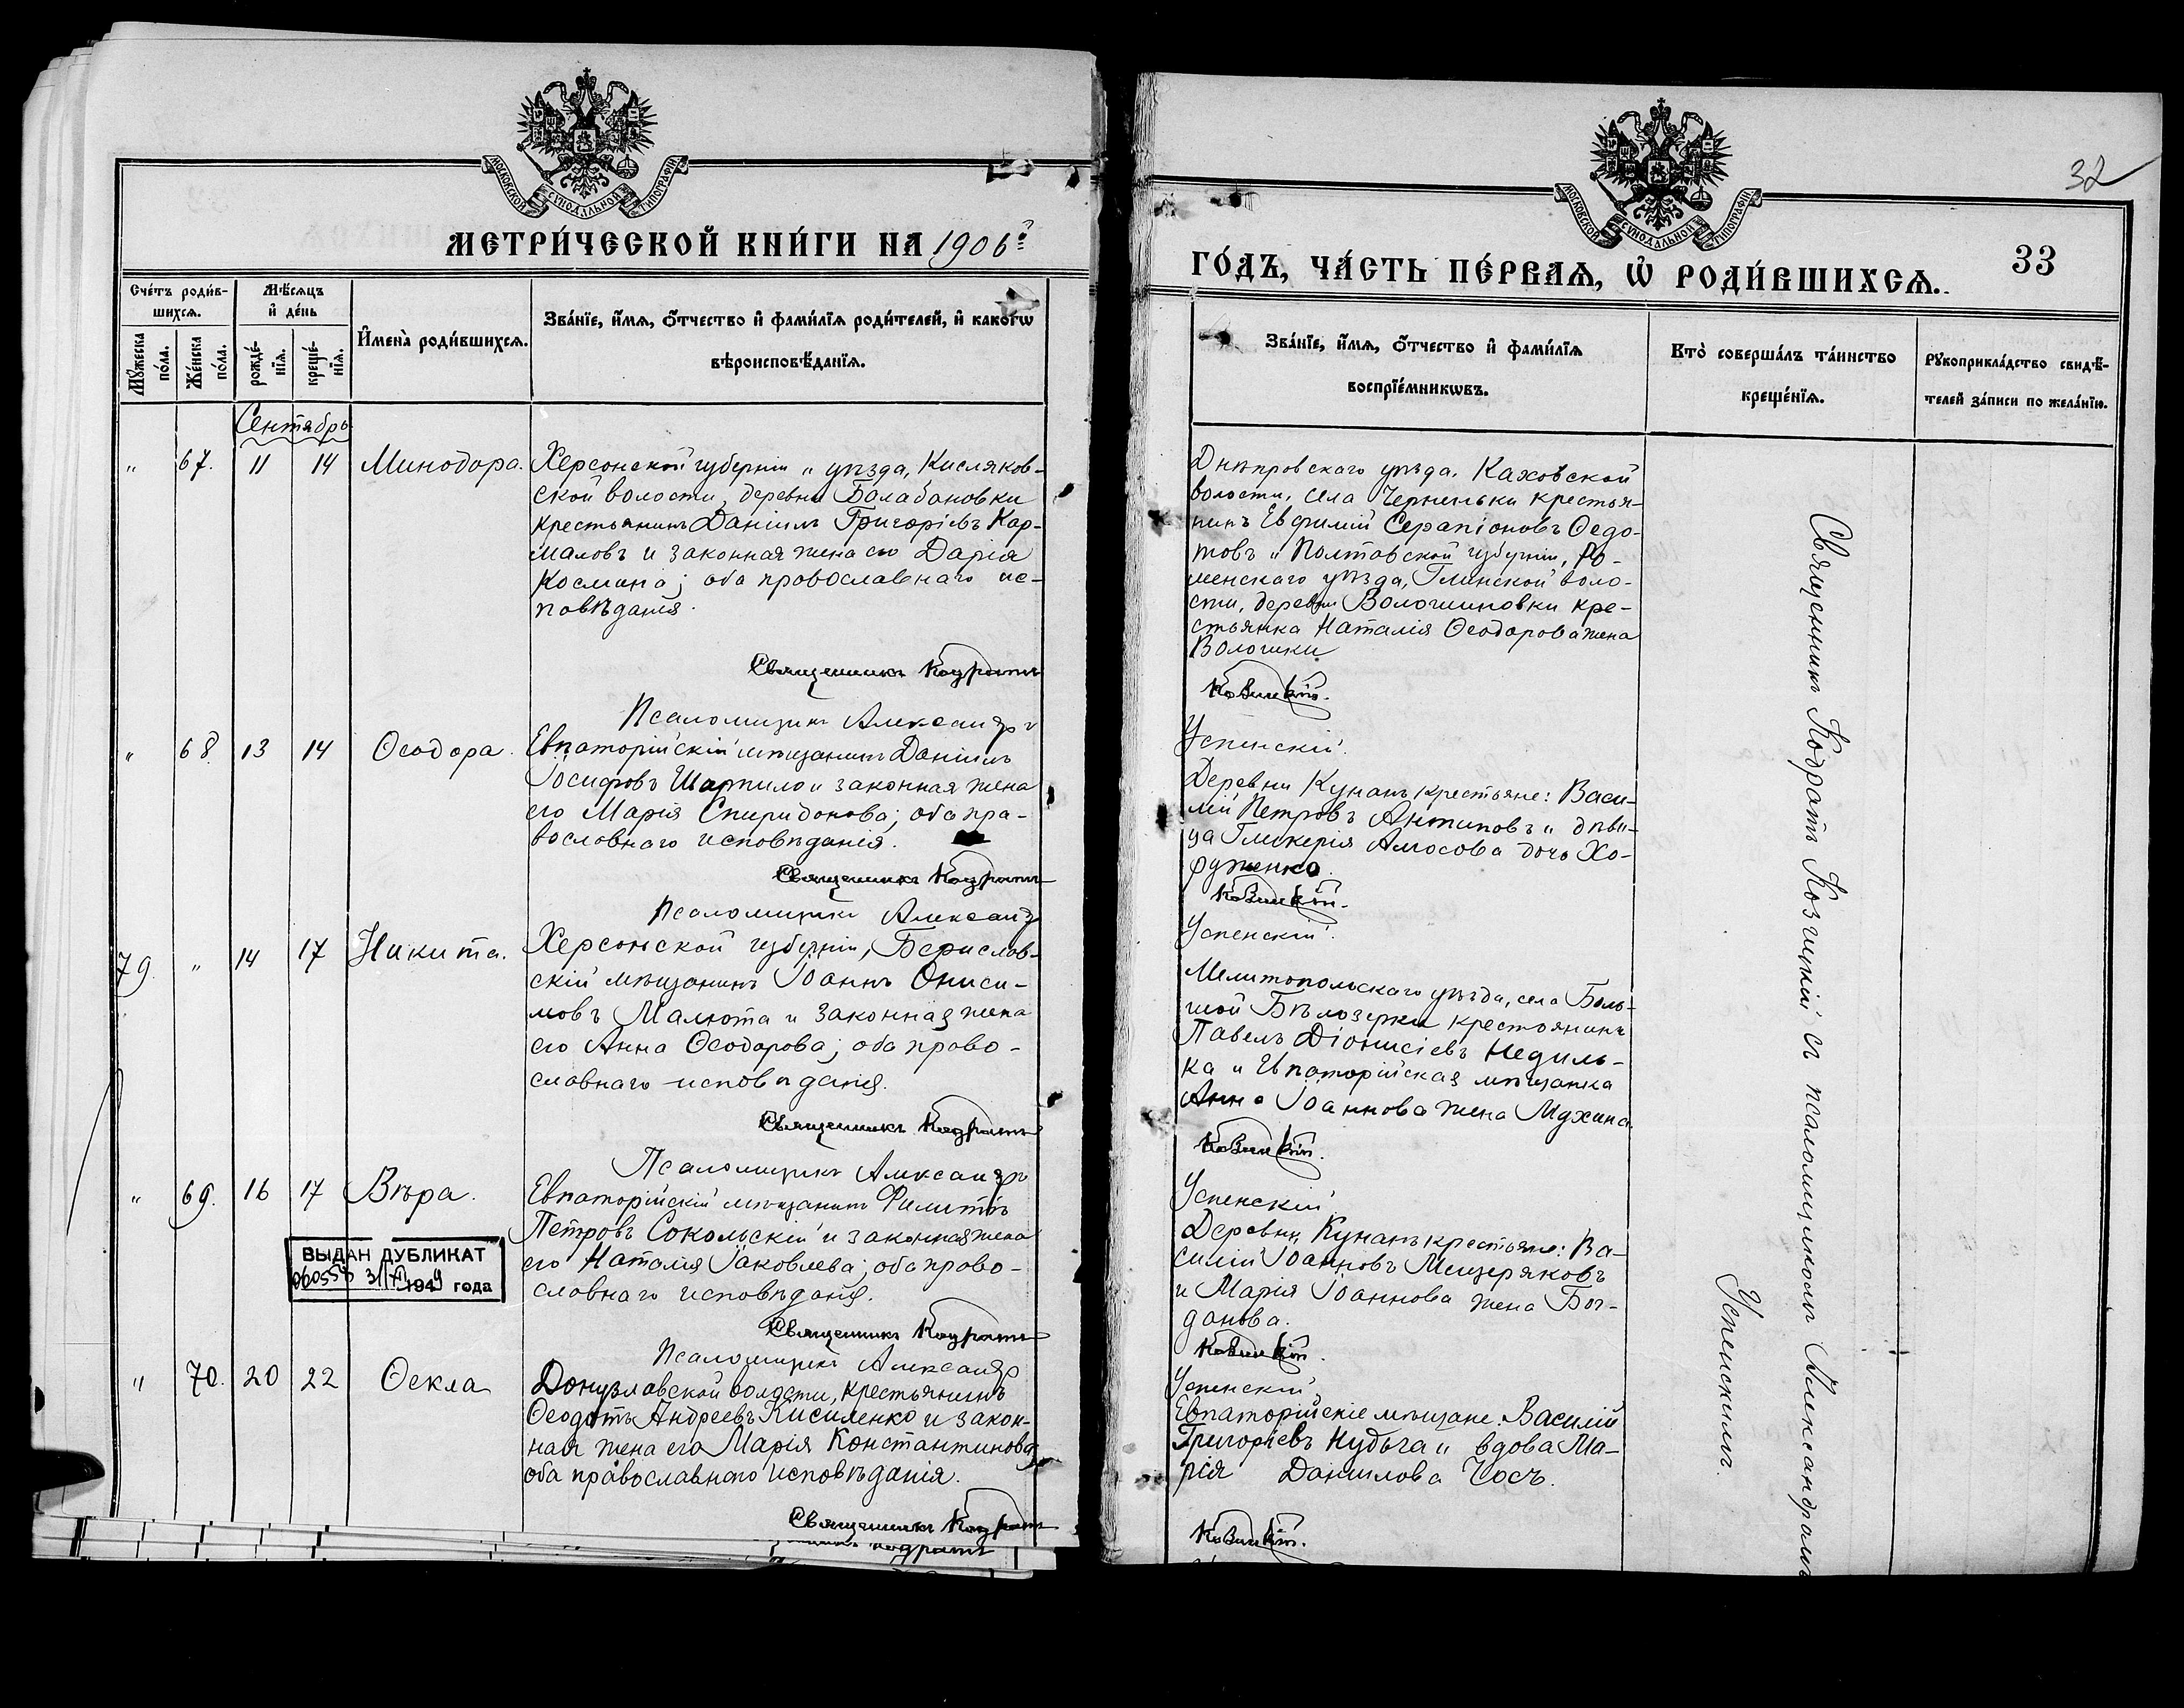 МОСКОВСКОЙ СѴНОДАЛЬНОЙ ТИПОГРАФІИ
МЕТРИ́ЧЕСКОЙ КНИ́ГИ НА 1906 г.
Сче́тъ роди́в-
шихсѧ.
Мѣ́сяцъ
и҆ де́нь
Мꙋ́жеска по́ла.
Же́нска по́ла.
рожде́-
нїѧ.
креще́-
нїѧ.
И҆мена̀ роди́вшихсѧ.
Зва́нїе, и҆́мѧ, ѻ҆́тчество и҆ фами́лїѧ роди́телей, и҆ како́гѡ
вѣроисповѣ́данїѧ.
Сентябрь
" 67. 11 14 Минодора.
Херсонской губерніи и уѣзда, Кисляков-
ской волости, деревни Балабановки
крестьянинъ Даніилъ Григоріевъ Кар-
маловъ и законная жена его Дарія
Космина; оба православнаго ис-
повѣданія.
Священникъ Кодратъ
Псаломщикъ Александръ
" 68. 13 14 Ѳеодора.
Евпаторійскій мѣщанинъ Даніилъ
Іосифовъ Шарпило и законная жена
его Марія Спиридонова; оба пра-
вославнаго исповѣданія.
Священникъ Кодратъ
Псаломщикъ Александръ
79. " 14 17 Никита.
Херсонской губерніи, Берислав-
скій мѣщанинъ Іоаннъ Ониси-
мовъ Малюта и законная жена
его Анна Ѳеодорова; оба право-
славнаго исповѣданія.
Священникъ Кодратъ
Псаломщикъ Александръ
" 69. 16 17 Вѣра.
Евпаторійскій мѣщанинъ Филиппъ
Петровъ Сокольскій и законная жена
его Наталія Іаковлева; оба право-
славнаго исповѣданія.
ВЫДАН ДУБЛИКАТ
1949 года
Священникъ Кодратъ
Псаломщикъ Александръ
" 70. 20 22 Ѳекла
Донузлавской волости, крестьянинъ
Ѳеодотъ Андреевъ Кисиленко и закон-
ная жена его Марія Константинова
оба православнаго исповѣданія.
Священникъ Кодратъ
МОСКОВСКОЙ СѴНОДАЛЬНОЙ ТИПОГРАФІИ
32
33
ГО́ДЪ, ЧА́СТЬ ПЕ́РВАѦ, Ѡ҆ РОДИ́ВШИХСѦ.
Зва́нїе, и҆́мѧ, ѻ҆́тчество и҆ фами́лїѧ
воспрїе́мникѡвъ.
Кто̀ соверша́лъ та́инство
креще́нїѧ.
Рꙋкоприкла́дство свидѣ́-
телей за́писи по жела́нїю.
Днѣпровскаго уѣзда, Каховской
волости, села Черненьки крестья-
нинъ Евфимій Серапіоновъ Ѳедо-
товъ и Полтавской губерніи, Ро-
менскаго уѣзда, Глинской воло-
сти, деревни Волошиновки кре-
стьянка Наталія Ѳеодорова жена
Волошки
Козицкій.
Успенскій.
Деревни Кунанъ крестьяне: Васи-
лій Петровъ Антиповъ и дѣви-
ца Гликерія Амосова дочь Хо-
руженко.
Козицкій.
Успенскій.
Мелитопольскаго уѣзда, села Боль-
шой Бѣлозерки крестьянинъ
Павелъ Діонисіевъ Недиль-
ка и Евпаторійская мѣщанка
Анна Іоаннова жена Мухина.
Козицкій.
Успенскій
Деревни Кунанъ крестьяне: Ва-
силій Іоанновъ Мещеряковъ
и Марія Іоаннова жена Бог-
данова.
Козицкій.
Успенскій
Евпаторійскіе мѣщане: Василій
Григоріевъ Кудьга и вдова Ма-
рія Даниилова Чосъ.
Козицкій.
Священникъ Кодратъ Козицкій съ псаломщикомъ Александромъ
Успенскимъ.